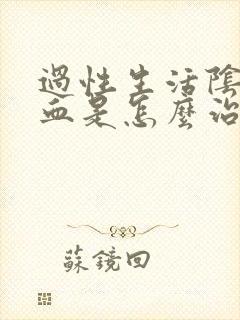 過性生活陰
血是怎麼治
蘇鏡回